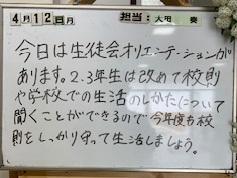 4月12日月 担当:大平 奏
今日は生徒会オリエンテーションが
あります。2.3年生は改めて校則
や学校での生活のしかたについて
聞くことができるので今年度も校
則をしっかり守って生活しましょう。